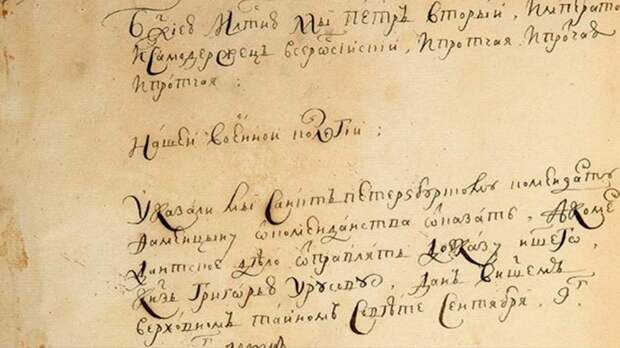 Бжїею Млтїю Мы Петръ вторый, Императо
ИСамодержецъ всеросїискїй, Ипротчая, Ипротчая
Ипротчая :
Нашей военной колегїи :
Указали мы Санктъпетербургскому коменданту
Фаменцыну ѿкомендантства ѿказать, Акоме
дантское дѣло ѿправлять доуказу ншего,
Кнзь Григорью Урусову, Данъ внашемъ
верховномъ тайномъ Совѣте Сентября, 9г